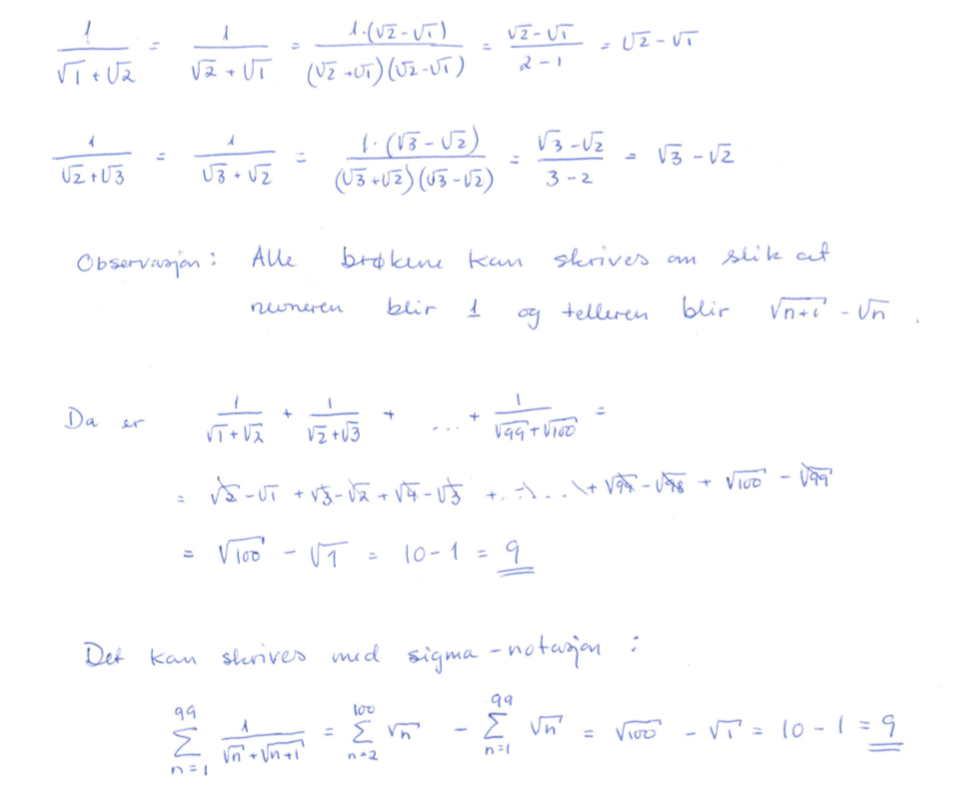 1/(√1 + √2) = 1/(√2 + √1) = 1·(√2 - √1)/((√2 + √1)(√2 - √1)) = (√2 - √1)/(2 - 1) = √2 - √1
1/(√2 + √3) = 1/(√3 + √2) = 1·(√3 - √2)/((√3 + √2)(√3 - √2)) = (√3 - √2)/(3 - 2) = √3 - √2
Observasjon: Alle brøkene kan skrives om slik at
nevneren blir 1 og telleren blir √(n+1) - √n .
Da er 1/(√1 + √2) + 1/(√2 + √3) + ... + 1/(√99 + √100) =
= √2 - √1 + √3 - √2 + √4 - √3 + ... + √99 - √98 + √100 - √99
= √100 - √1 = 10 - 1 = 9
Det kan skrives med sigma-notasjon :
∑_{n=1}^{99} 1/(√n + √(n+1)) = ∑_{n=2}^{100} √n - ∑_{n=1}^{99} √n = √100 - √1 = 10 - 1 = 9